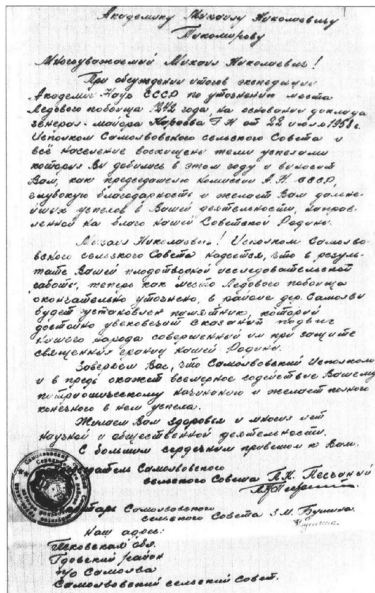 Академику Михаилу Николаевичу
Тихомирову
Многоуважаемый Михаил Николаевич!
При обсуждении итогов экспедиции
Академии Наук СССР по уточнению места
Ледового побоища 1242 года на основании доклада
генерал-майора Караева Г.Н. от 22 июля 1958 г.
Исполком Самолвовского сельского Совета и
всё население восхищены теми успехами
которых Вы добились в этом году и выносит
Вам, как председателю комиссии А.Н. СССР,
глубокую благодарность и желает Вам дальней-
ших успехов в Вашей деятельности, направ-
ленной на благо нашей Советской Родины.
Михаил Николаевич! Исполком Самолво-
вского сельского Совета надеется, что в резуль-
тате Вашей плодотворной исследовательской
работы, теперь как место Ледового побоища
окончательно уточнено, в районе дер. Самолвы
будет установлен памятник, который
достойно увековечит сказанный подвиг
нашего народа совершенный им при защите
священных границ нашей Родины.
Заверяем Вас, что Самолвовский Исполком
и в предь окажет всемерное содействие Вашему
патриотическому начинанию и желает полного
конечного в нем успеха.
Желаем Вам здоровья и многих лет
научной и общественной деятельности.
С большим сердечным приветом к Вам.
Председатель Самолвовского
сельского Совета П.К.
Секретарь Самолвовского
сельского Совета З.М.
Наш адрес:
Псковская обл.
Гдовский район
п/о Самолва
Самолвовский сельский Совет.